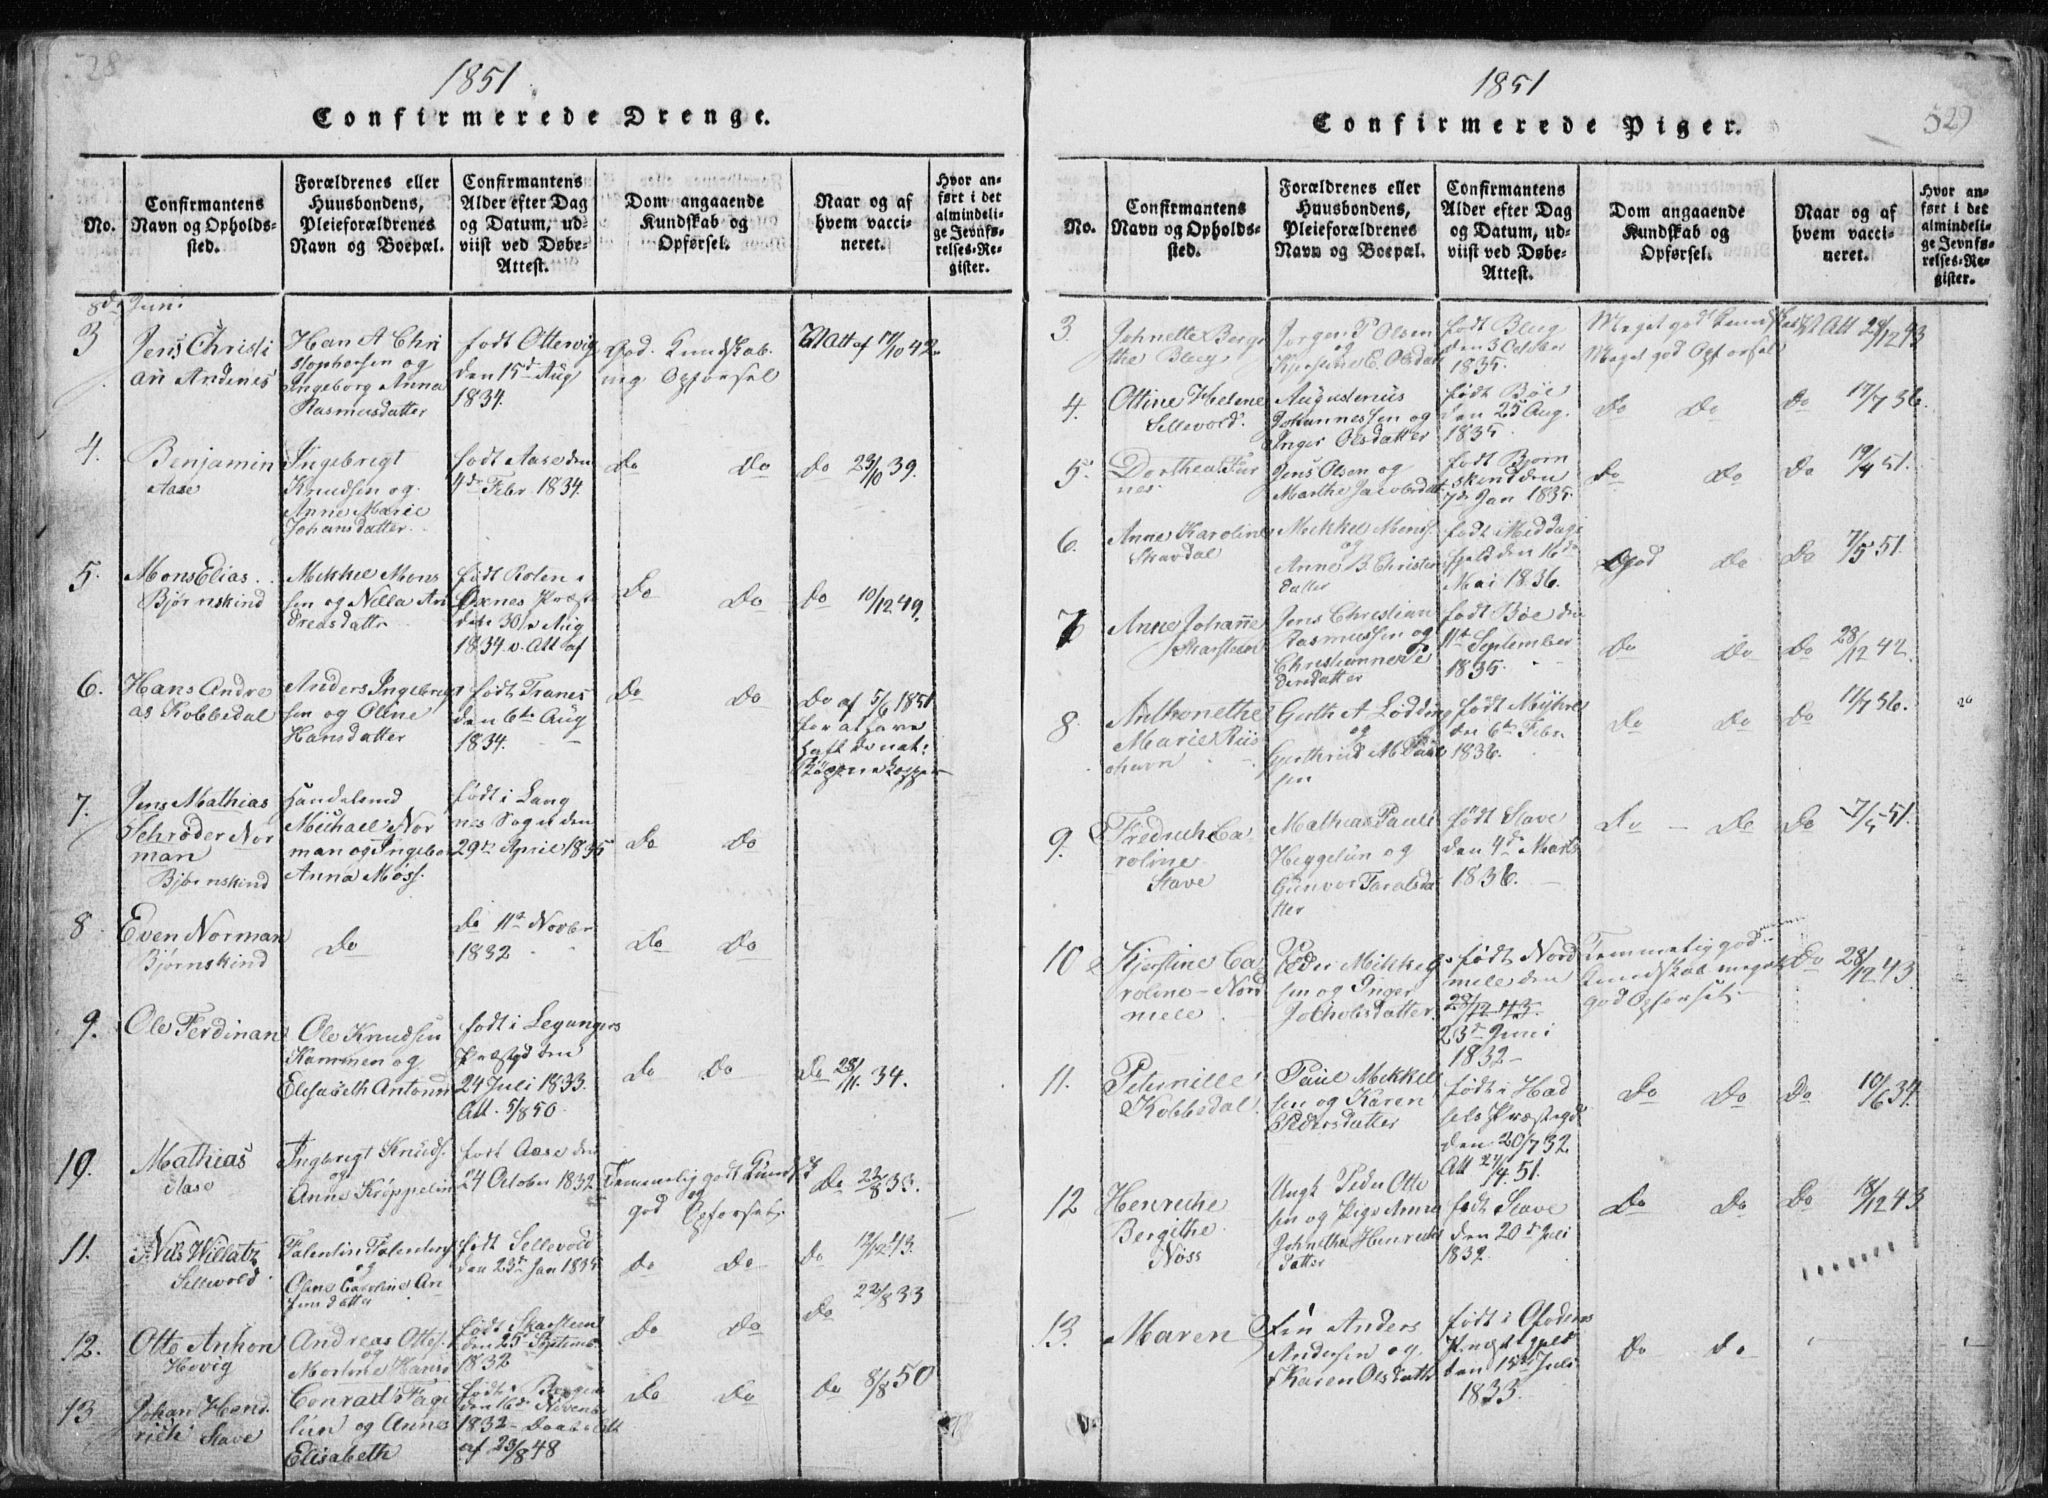 28
1851
Confirmerede Drenge.
No.
Confirmantens
Navn og Opholds-
sted.
Forældrenes eller
Huusbondens,
Pleieforældrenes
Navn og Boepæl.
Confirmantens
Alder efter Dag
og Datum, ud-
viist ved Døbe-
Attest.
Dom angaaende
Kundskab og
Opførsel.
Naar og af
hvem vacci-
neret.
Hvor an-
ført i det
almindeli-
ge Jevnfø-
relses-Re-
gister.
8de Juni
3
Jens Christi
an Andenes
Han A Chri
stophersen og
Ingeborg Anna
Rasmusdatter
født Ottervig
den 15d Aug
1834.
God Kundskab
og Opførsel
Att af 17/10 42
4.
Benjamin
Aase
Ingebregt
Knudsen og
Anne Marie
Johansdatter
født Aase den
4de Febr 1834.
Do Do
Do 23/10 39.
5.
Mons Elias
Bjørnskind
Mikkel Mons
sen og Nilla An
dreasdattr
født Roten i
Øxnes Præst
den 30te Aug
1834. v. Att af
Do Do
Do 10/12 49.
6.
Hans Andre
as Kobbedal
Anders Ingebrigt
sen og Oline
Hansdatter
født Tranes
den 6te Aug
1834.
Do Do
Do af 5/6 1851
for at have
haft de nat:
Børnekopper
7.
Jens Mathias
Schrøder Nor
man
Bjørnskind
Handelsmd
Michael Nor
man og Ingebor
Anna Moss.
født i Lang
nes Sogn den
29de April 1835
Do Do
8
Even Norman
Bjørnskind
Do
Do 11te Novbr
1832
Do Do
9.
Ole Ferdinan
Ole Knudsen
Kammen og
Elisabeth Antonn
født i Legangers
Præstgd den
24 Juli 1833.
Att. 5/8 50.
Do Do
Do 28/11. 34.
10.
Mathias
Aase
Ingbregt Knuds.
og
Anne Krøppelin
født Aase den
24 October 1832
Temmelig godt Kundsk
og
god Opførsel
Do 22/8 33.
11.
Nils Wielatz
Sellevold
Falentin Falentins
og
Oline Caroline An
født Sellevold
den 23de Jan 1835
Do Do
Do 12/12 43.
12.
Otto Anhon
Hovig
Andreas Ottes.
og
Mortine Hans
født Skarsteen
den 25d Septembr
1832
Do Do
Do 22/8 33
13
Johan Hend
rich Stave
Conrad Fage
lun og Anne
Elisabeth
født i Bergen
den 16de Novemb
1832 Daabs Att
af 23/8 48
Do Do
Do 8/8 50
1851
329
Confirmerede Piger.
No.
Confirmantens
Navn og Opholds-
sted.
Forældrenes eller
Huusbondens,
Pleieforældrenes
Navn og Boepæl.
Confirmantens
Alder efter Dag
og Datum, ud-
viist ved Døbe-
Attest.
Dom angaaende
Kundskab og
Opførsel.
Naar og af
hvem vacci-
neret.
Hvor an-
ført i det
almindeli-
ge Jevnfø-
relses-Re-
gister.
3.
Johnette Berg
the Bleg
Jørgen P Olsen
og
Kjerstine E. Olsdatt
født Bleg
den 3 October
1835.
Meget god Kundskab
Meget god Opførsel
Att 28/12 43
4.
Ottine Helene
Sellevold.
Augustinus
Johannessen og
Inger Olsdatter
født Bøe
den 25 Aug.
1835.
Do Do
Do 17/7 36.
5.
Dorthea Fur
nes.
Jens Olsen og
Marthe Jacobsdatt
født Bjørn
skind den
7de Jan 1835.
Do Do
Do 19/4 51.
6.
Anne Karoline
Skavdal
Mikkel Mons.
og
Anne B. Christen
datter
født Middags
fjeld den 16de
Mai 1836.
God Do
Do 7/5 51.
7
Anne Johanne
Skarsteen
Jens Christian
Rasmussen og
Christianne Pe
dersdatter
født Bøe den
11te September
1835.
Do Do
Do 28/12 42.
8
Anthonethe
Marie Riis
ohavn
Gerth A Lødding
og
Gerthrud M Paul
sen
født Myhre
den 6te Febr.
1836.
Do Do
Do 17/7 36.
9.
Fredriche Ca
roline
Stave
Mathias Pauls
Heggelun og
Gunvor Taralsda
tter
født Stave
den 4de Marts
1836.
Do Do
Do 7/5 51.
10
Kjerstine Ca
roline Nord
mele
Peder Mikkels
sen og Inger
Jakobsdatter.
født Nord
mele den
28/12 43.
23de Juni
1832
Temmelig god
Kundskab meget
god Opførsel
Do 28/12 43.
11.
Peternille
Kobbedal.
Paul Mikkel
sen og Karen
Pedersdatter
født i Had
sels Præstegd
den 20/7 32.
Att 24/4. 51.
Do Do
Do 10/6 34.
12
Henriche
Bergithe
Nøss
Ungk Peder Otte
sen og Pige Anne
Johnetha Henrichs
datter
født Stave
den 20de Juli
1832.
Do Do
Do 18/12 43
13.
Maren
Fin Anders
Andersen og
Karen Olsdatter
født i Ofodens
Præstegjeld
den 15de Juli
1833.
Do Do